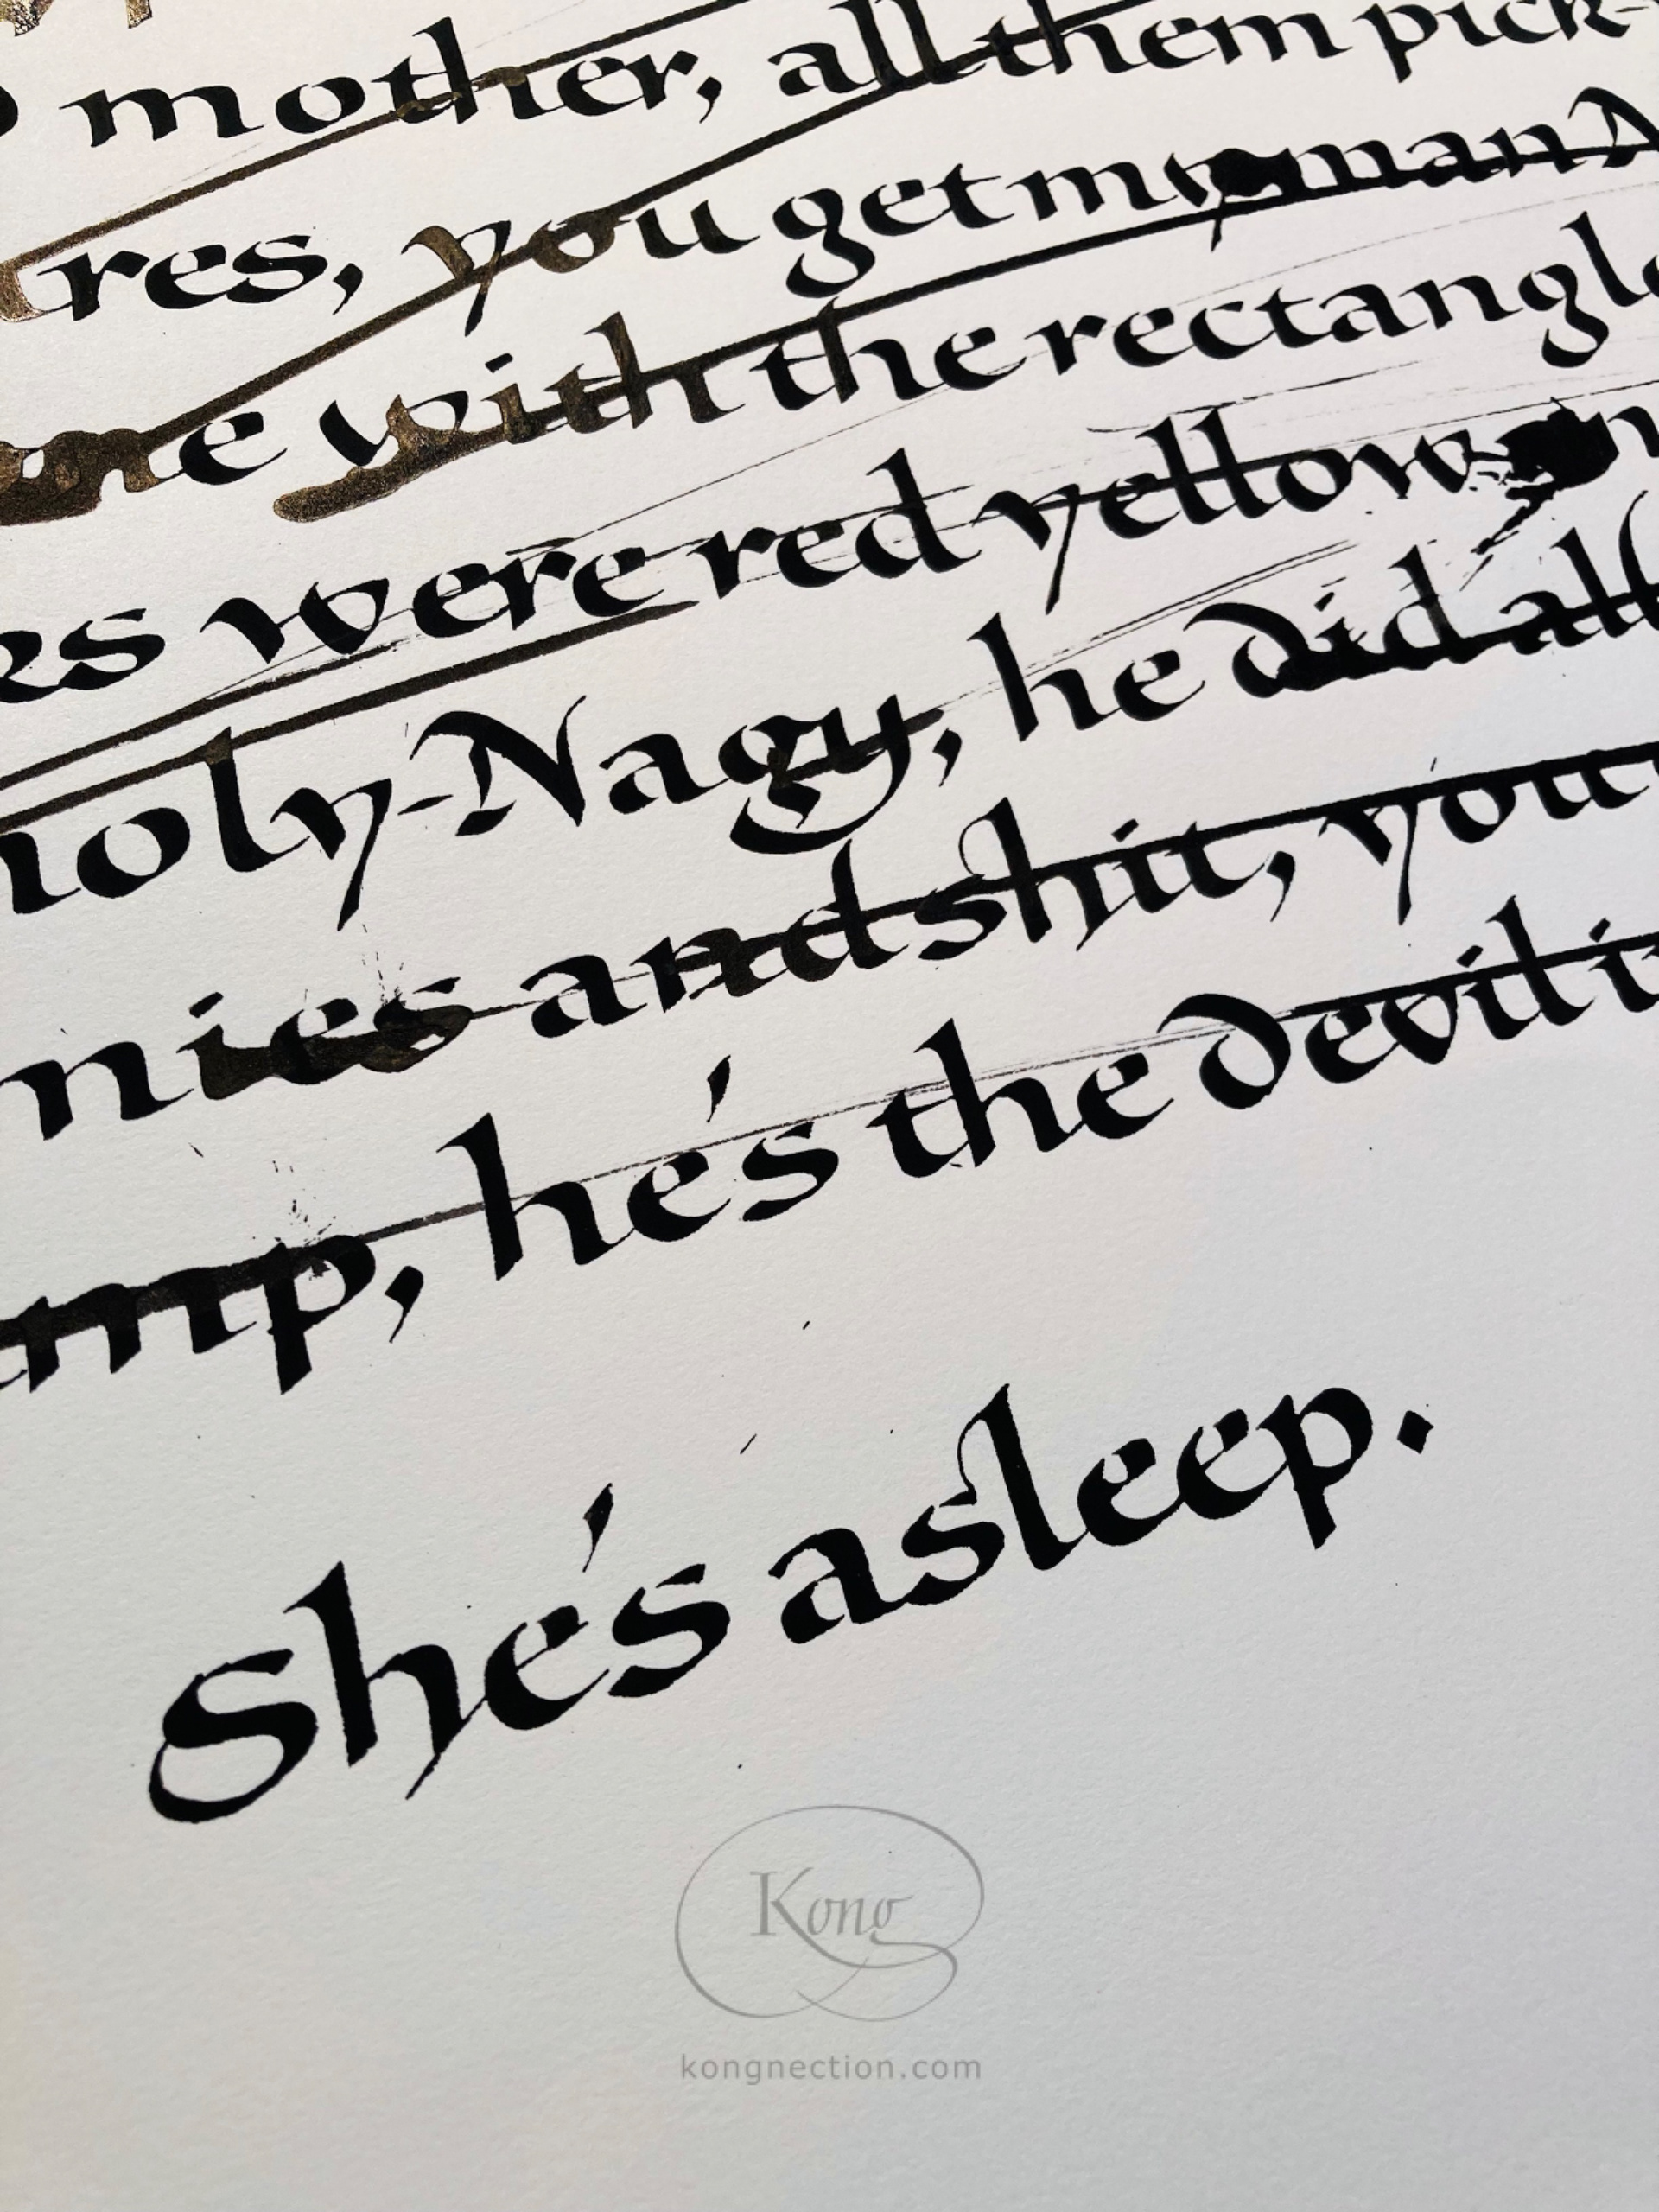 mother, all them pick-
res, you get my man
ne with the rectangle
es were red yellow
holy-Nagy, he did all
nies and shit, you
mp, he's the devil i
She's asleep.
Kong
kongnection.com